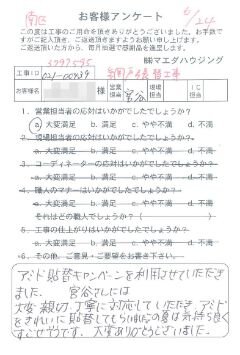 南区
6/24
お客様アンケート
この度は工事のご用命を頂きありがとうございました。お手数で
すがご記入頂き、ご返送頂きますようお願い申し上げます。
ご返送頂いた方から、毎月抽選で感謝品を進呈します。
㈱マエダハウジング
工事ID
021-00939
お客様名
様
営業担当
宮谷
現場担当
IC担当
1．営業担当者の応対はいかがでしたでしょうか？
a．大変満足 b．満足 c．やや不満 d．不満
2．現場担当者の応対はいかがでしたでしょうか？
a．大変満足 b．満足 c．やや不満 d．不満
3．コーディネーターの応対はいかがでしたでしょうか？
a．大変満足 b．満足 c．やや不満 d．不満
4．職人のマナーはいかがでしたでしょうか？
a．大変満足 b．満足 c．やや不満 d．不満
それはどの職人でしょうか？（ ）
5．工事の仕上がりはいかがでしたでしょうか？
a．大変満足 b．満足 c．やや不満 d．不満
6．その他、ご意見・ご要望をお書き下さい。
アミド貼替キャンペーンを利用させていただき
ました。宮谷さんには
大変親切、丁寧に対応していただき、アミド
をきれいに貼替してもらいました。夏は気持ち良く
すごせそうです。大変ありがとうございました。